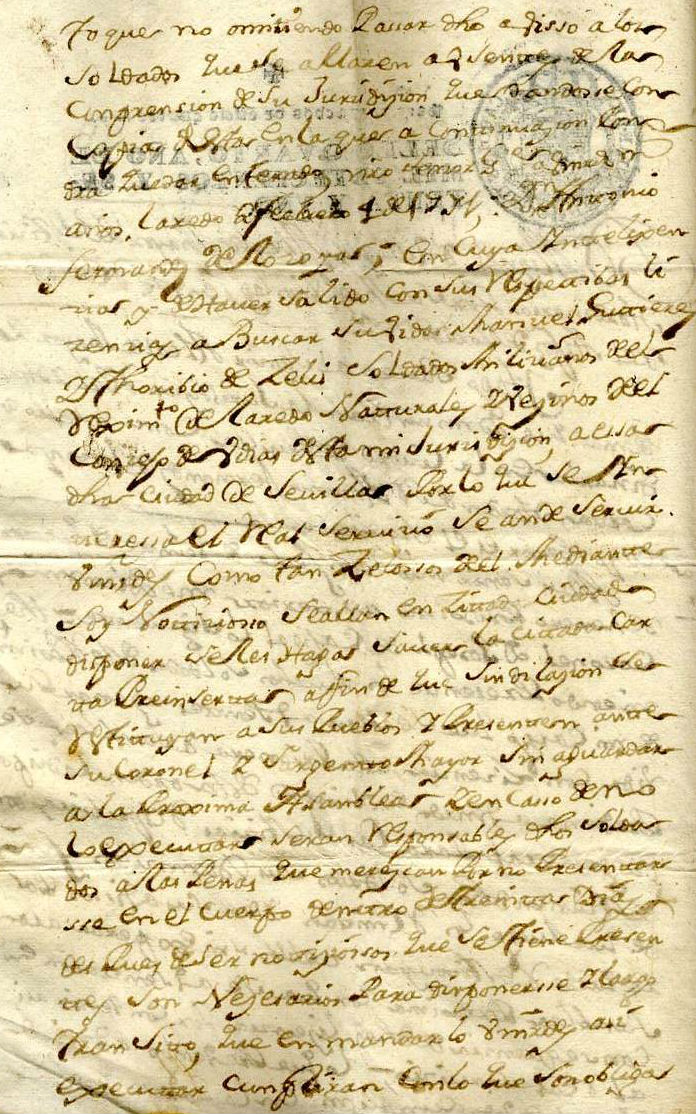 to que no omitiendo Pasar dho avisso a los
soldados que se allaren ausentes de las
Conprension de su Jurisdizion que dandosse con
Copias destas en la que a Continuazion pon
dra quedar enterado,
años. Laredo febrero 4 de Dn Antonio
fernandez de en Cuya Intelixen
y de Haver salido con sus Respectibos
a Buscar su vida Manuel Gutierrez
y thoribio de Zelis soldados Milizianos del
Reximto de Laredo Naturales y Vezinos del
Conzejo de desta mi Jurisdizion, a essa
dha Ciudad de Sevilla Por lo que se Yn
teressa el Real servizio se an de servir
Vmdes Como tan Zelosos del. Mediante
soy Notizioso se allan en zitada Ciudad
disponer se les Haga saver la zittada Car
ta Preinserta a fin de que sin dilazion se
Restituyan a sus Pueblos y Presenten ante
su Coronel y Sargento Mayor sin aguardar
a la Proxima Asamblea y en Caso de no
lo executar seran Responsables dhos solda
dos a las Penas que merezcan Por no Presentar
sse en el Cuerpo dentro de treinta Dias
des Pues de ser notiziosos que se tiene Presen
tes son Nezesarios Para disponersse y largo
Transito, que en mandarlo Vmrdes asi
executar cunpliran con lo que son obligas